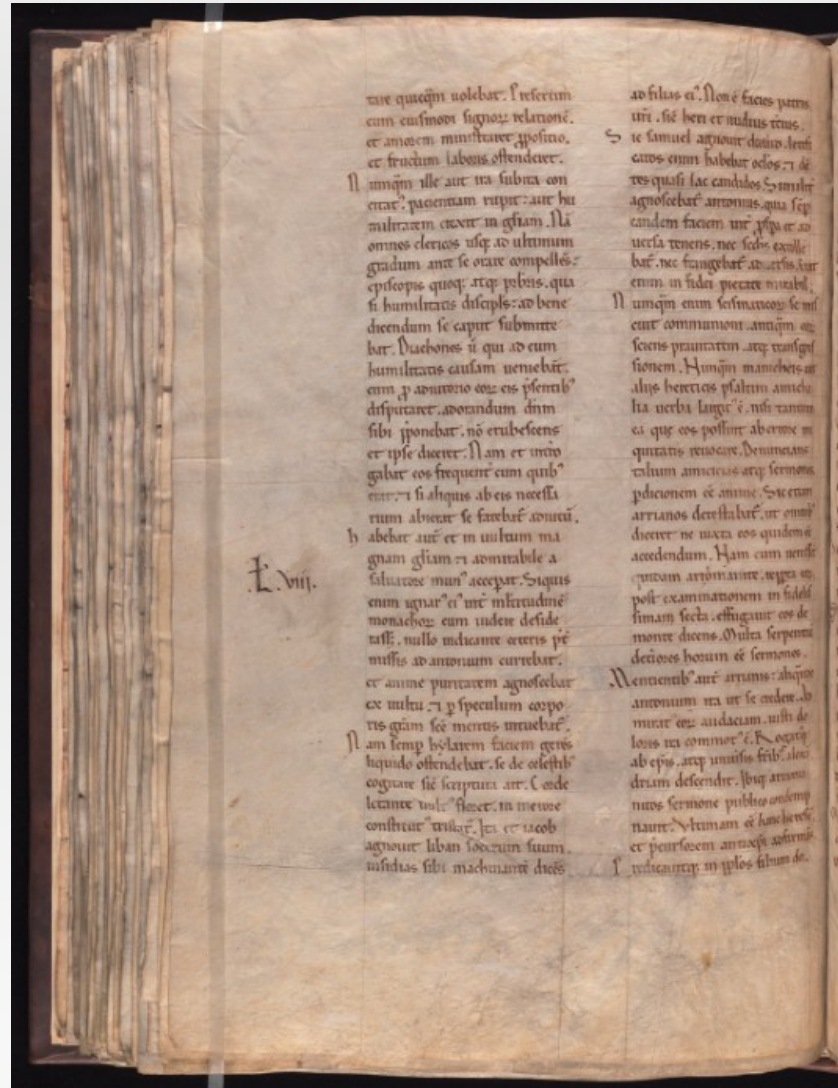 tare quicq̄m uolebat. Presertim
cum eiusmodi signoꝝ relationē.
et amorem ministraret ꝓposito.
et fructum laboris ostenderet.
Nunq̄m ille aut ira subita con
citatꝰ pacientiam rupit: aut hu
militatem erexit in gl̄iam. Nā
omnes clericos usq; ad ultimum
gradum ante se orare compellēs:
episcopis quoq; atq; p̄bris. qua
si humilitatis discipl̄s: ad bene
dicendum se caput submitte
bat. Diachones ū qui ad eum
humilitatis causam ueniebāt.
cum ꝓ adiutorio eoꝝ eis p̄sentibꝰ
disputaret. ad orandum dn̄m
sibi p̄ponebat. nō erubescens
et ipse discere. Nam et intro
gabat eos frequent̄ cum quibꝰ
erat. ⁊ si aliquis ab eis necessa
rium
se fatebat̄ adiutū.
habebat aut̄ et in uultum ma
gnam gl̄iam ⁊ admirabile a
.L.viii.
saluatore munꝰ acceperat. Siquis
enim ignarꝰ eiꝰ int̄ multitudinē
monachoꝝ eum uidere deside
rass&. nullo indicante ceteris p̄t
missis ad antonium currebat.
et anime puritatem agnoscebat
ex uultu. ⁊ ꝑ speculum corpo
ris gr̄am sc̄e mentis intuebat̄.
Nam semꝑ hylarem faciem gerēs
liquido ostendebat. se de celestibꝰ
cogitare. sic̄ scriptura ait. Corde
letante uultꝰ floret. in merore
constitutꝰ tristat̄. Ita et iacob
agnouit laban socerum suum.
insidias sibi machinantē dicēs
ad filias eiꝰ. Non ē facies patris
uri. sic̄ heri et nudius t̄cius.
Sic samuel agnouit dauid. letifi
catos enim habebat oc̄los. ⁊ dē
tes quasi lac candidos. Similit̄
agnoscebat̄ antonius. quia semꝑ
eandem faciem int̄ ꝓspa et ad
uersa tenens. nec sedis extolle
bat̄. nec frangebat̄ aduersis. Erat
enim in fidei pietate mirabil.
Nunq̄m enim scismaticoꝝ se mis
cuit communioni. antiq̄m eoꝝ
sciens prauitatem. atq; transgres
sionem. Nunq̄m manicheis aut
aliis hereticis psaltim amicha
lia uerba largitꝰ ē. nisi tantum
ea que eos possint abertere in
iquitatis reuocare. Denuncians
talium amicicias atq; sermones
ꝑdicionem eē anime. Sic etiam
arrianos detestabat̄. ut omnibꝰ
diceret ne iuxta eos quidem eē
accedendum. Nam cum uenissēt
quidam
post examinationem infideli
simam secta. effugauit eos de
monte dicens. Multa serpentū
deciores horum eē sermones.
Mentientibꝰ aut̄ arrianis: aliq̄ndo
antonium ita ut se credere. Ad
mirat̄ eoꝝ audaciam. iusti do
loris ira commotꝰ ē. Rogatusq;
ab ep̄is. atq; uniūsis fr̄ibꝰ. alexā
driam descendit. Ibiq; arriana
nitos sermone publico condemp
nauit. Vltimam eē hanc heresē.
et p̄cursorem antixp̄i adfirmās
Predicauitq; in ppl̄os filium dei.